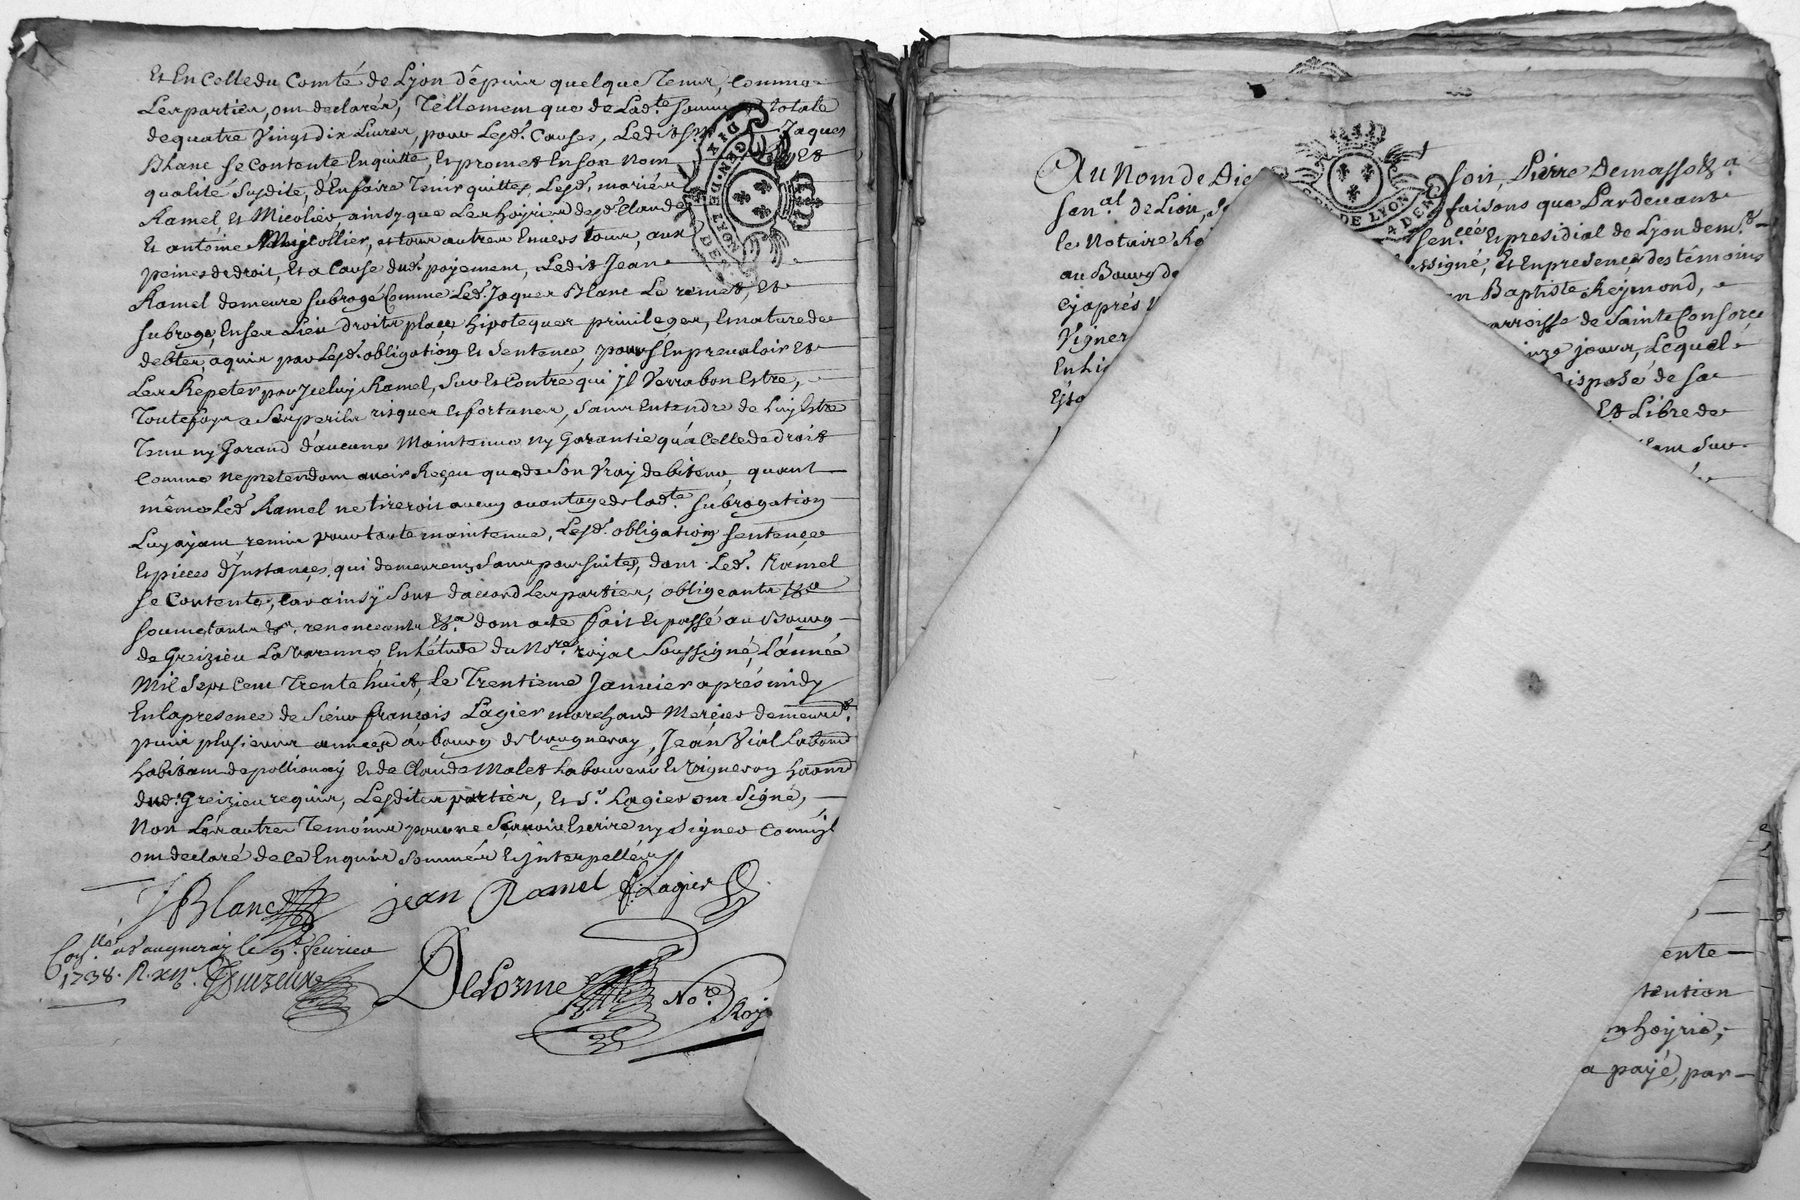 Et En Celle du Comté de Lyon dépuis quelque Tems, Comme
Les parties, ont declarés, Tellement que de Lad.te somme totale
de quatre Vingt dix Livres, pour Lesd. Causes, Ledit Sr Jaques
Blanc Se Contente En quitte, Et promet En son Nom Et
qualité Susdite, d'En faire Tenir quittes, Lesd. mariés
Ramel, Et Micolier ainsy que Les hoyries desd. Claude
Et antoine Micollier, et tous autres Envers tous, aux
peines de droit, Et a Cause dud. payement, Ledit Jean
Ramel demeure subrogé Comme Led. Jaques Blanc Le remet, Et
subroge, En ses Lieu droits place hipoteques privileges, Et nature de
debtes, aquis par Lesd. obligation Et Sentence, pour s'En prevaloir Et
Les Repeter par Iceluy Ramel, Sur Et Contre qui Jl Verra bon Estre,
Toutefoys a Ses perils risques Et fortunes, Sans Entendre de Luy Estre
Tenu ny Garand d'aucune Maintenue ny Garantie qu'a Celle de droit
Comme ne pretendant avoir Reçeu que de Son Vray debiteur, quant
même Led. Ramel ne tireroit aucun avantage de lad.te subrogation
Luy ayant remis pour toute maintenue, Lesd. obligation sentence
Et pieces d'Instances, qui demeurent Sans poursuites, dont Led. Ramel
Se Contente, Car ainsy Sont d'acord Les parties, obligeants &.a
soumetants &.a renonceants &.a dont acte fait Et passé au Bourg
de Greizieu La Varenne, En L'étude du No.re royal Soussigné, L'année
Mil Sept Cent Trente huict, Le Trentieme Janvier aprés midy
En la presence de Sieur françois Lagier marchand Mercier demeur.t
puis plusieurs années au bourg de Vaugneray, Jean Vial Lab
habitant de pollionay Et de Claude Malet Laboureur Et Vigneron
dud. Greizieu requis, Lesdites parties, Et S.r Lagier ont Signé,
Non Les autres Temoins pour ne Sçavoir Escrire ny Signer Comm'jl
ont declaré de ce Enquis Sommés Et jnterpellés
J Blanc jean Ramel f. Lagier
Con.llé a Vaugneray le 9.e fevrier
1738. R.
DeLorme No.re Roy
Au Nom de Die soit, Pierre Demasso &.a
Sen.al de Lion, faisons que Pardevant
le Notaire Ro Sen.cée Et presidial de Lyon dem.t
au Bourg de ussigné, Et En presence des têmoins
cyaprés n Baptiste Reymond,
Vigner arroisse de Sainte Consorce
En hi inze jours, Lequel
ispasé de sa
Et Libre de
ente
tention
hoyrie,
a payé, par
GEN. DE LYON
GEN. DE LYON 4 DEN